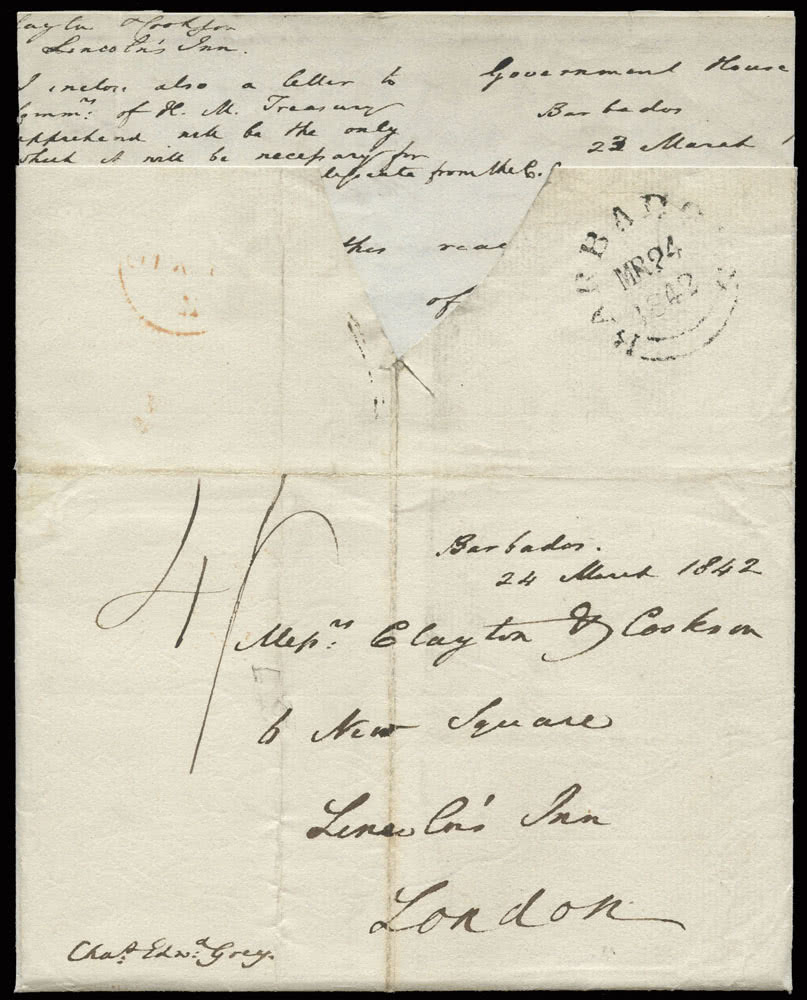 Clayton & Cookson
Lincoln's Inn.
I inclose also a letter to
Comm.rs of H. M. Treasury
apprehend will be the only
which it will be necessary for
from the C.
Government House
Barbados
23 March
this
of
BARBADOS
MR 24
1842
PAID
4/
Barbados.
24 March 1842
Mess.rs Clayton & Cookson
6 New Square
Lincoln's Inn
London
Cha.s Edw.d Grey.